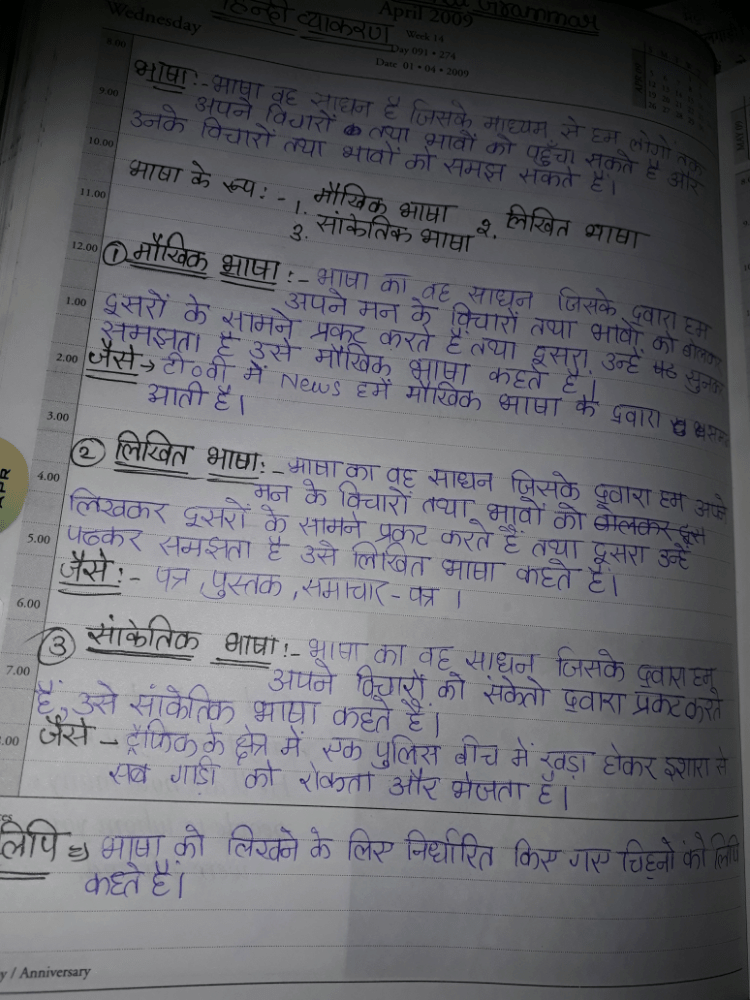 Grammar
Wednesday
हिन्दी व्याकरण
April 2009
Week 14
Day 091 • 274
Date 01 • 04 • 2009
8.00
भाषा :- भाषा वह साधन है जिसके माध्यम से हम लोगों तक
9.00
अपने विचारों तथा भावों को पहुँचा सकते है और
उनके विचारों तथा भावों को समझ सकते हैं।
10.00
भाषा के रूप :- 1. मौखिक भाषा २. लिखित भाषा
11.00
3. सांकेतिक भाषा
12.00
① मौखिक भाषा :- भाषा का वह साधन जिसके द्वारा हम
अपने मन के विचारों तथा भावों को बोलकर
1.00
दूसरों के सामने प्रकट करते हैं तथा दूसरा उन्हें सुनकर
समझता है उसे मौखिक भाषा कहते हैं।
2.00
जैसे → टी०वी में News हमें मौखिक भाषा के द्वारा समझ
आती है।
3.00
② लिखित भाषा :- भाषा का वह साधन जिसके द्वारा हम अपने
4.00
मन के विचारों तथा भावों को बोलकर
लिखकर दूसरों के सामने प्रकट करते हैं तथा दूसरा उन्हें
5.00
पढकर समझता है उसे लिखित भाषा कहते हैं।
जैसे :- पत्र, पुस्तक, समाचार-पत्र ।
6.00
③ सांकेतिक भाषा :- भाषा का वह साधन जिसके द्वारा हम
7.00
अपने विचारों को संकेतो द्वारा प्रकट करते
हैं, उसे सांकेतिक भाषा कहते हैं।
.00
जैसे - ट्रैफिक के क्षेत्र में एक पुलिस बीच में खड़ा होकर इशारा से
सब गाड़ी को रोकता और भेजता है।
लिपि ⇒ भाषा को लिखने के लिए निर्धारित किए गए चिह्नों को लिपि
कहते हैं।
y / Anniversary